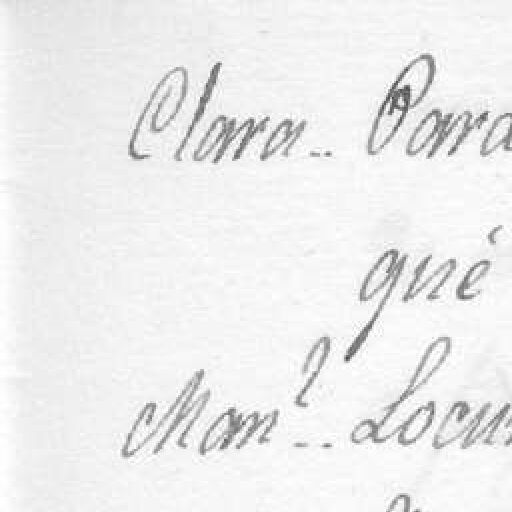 Clara.. Para
qué
Man.l.. Locu